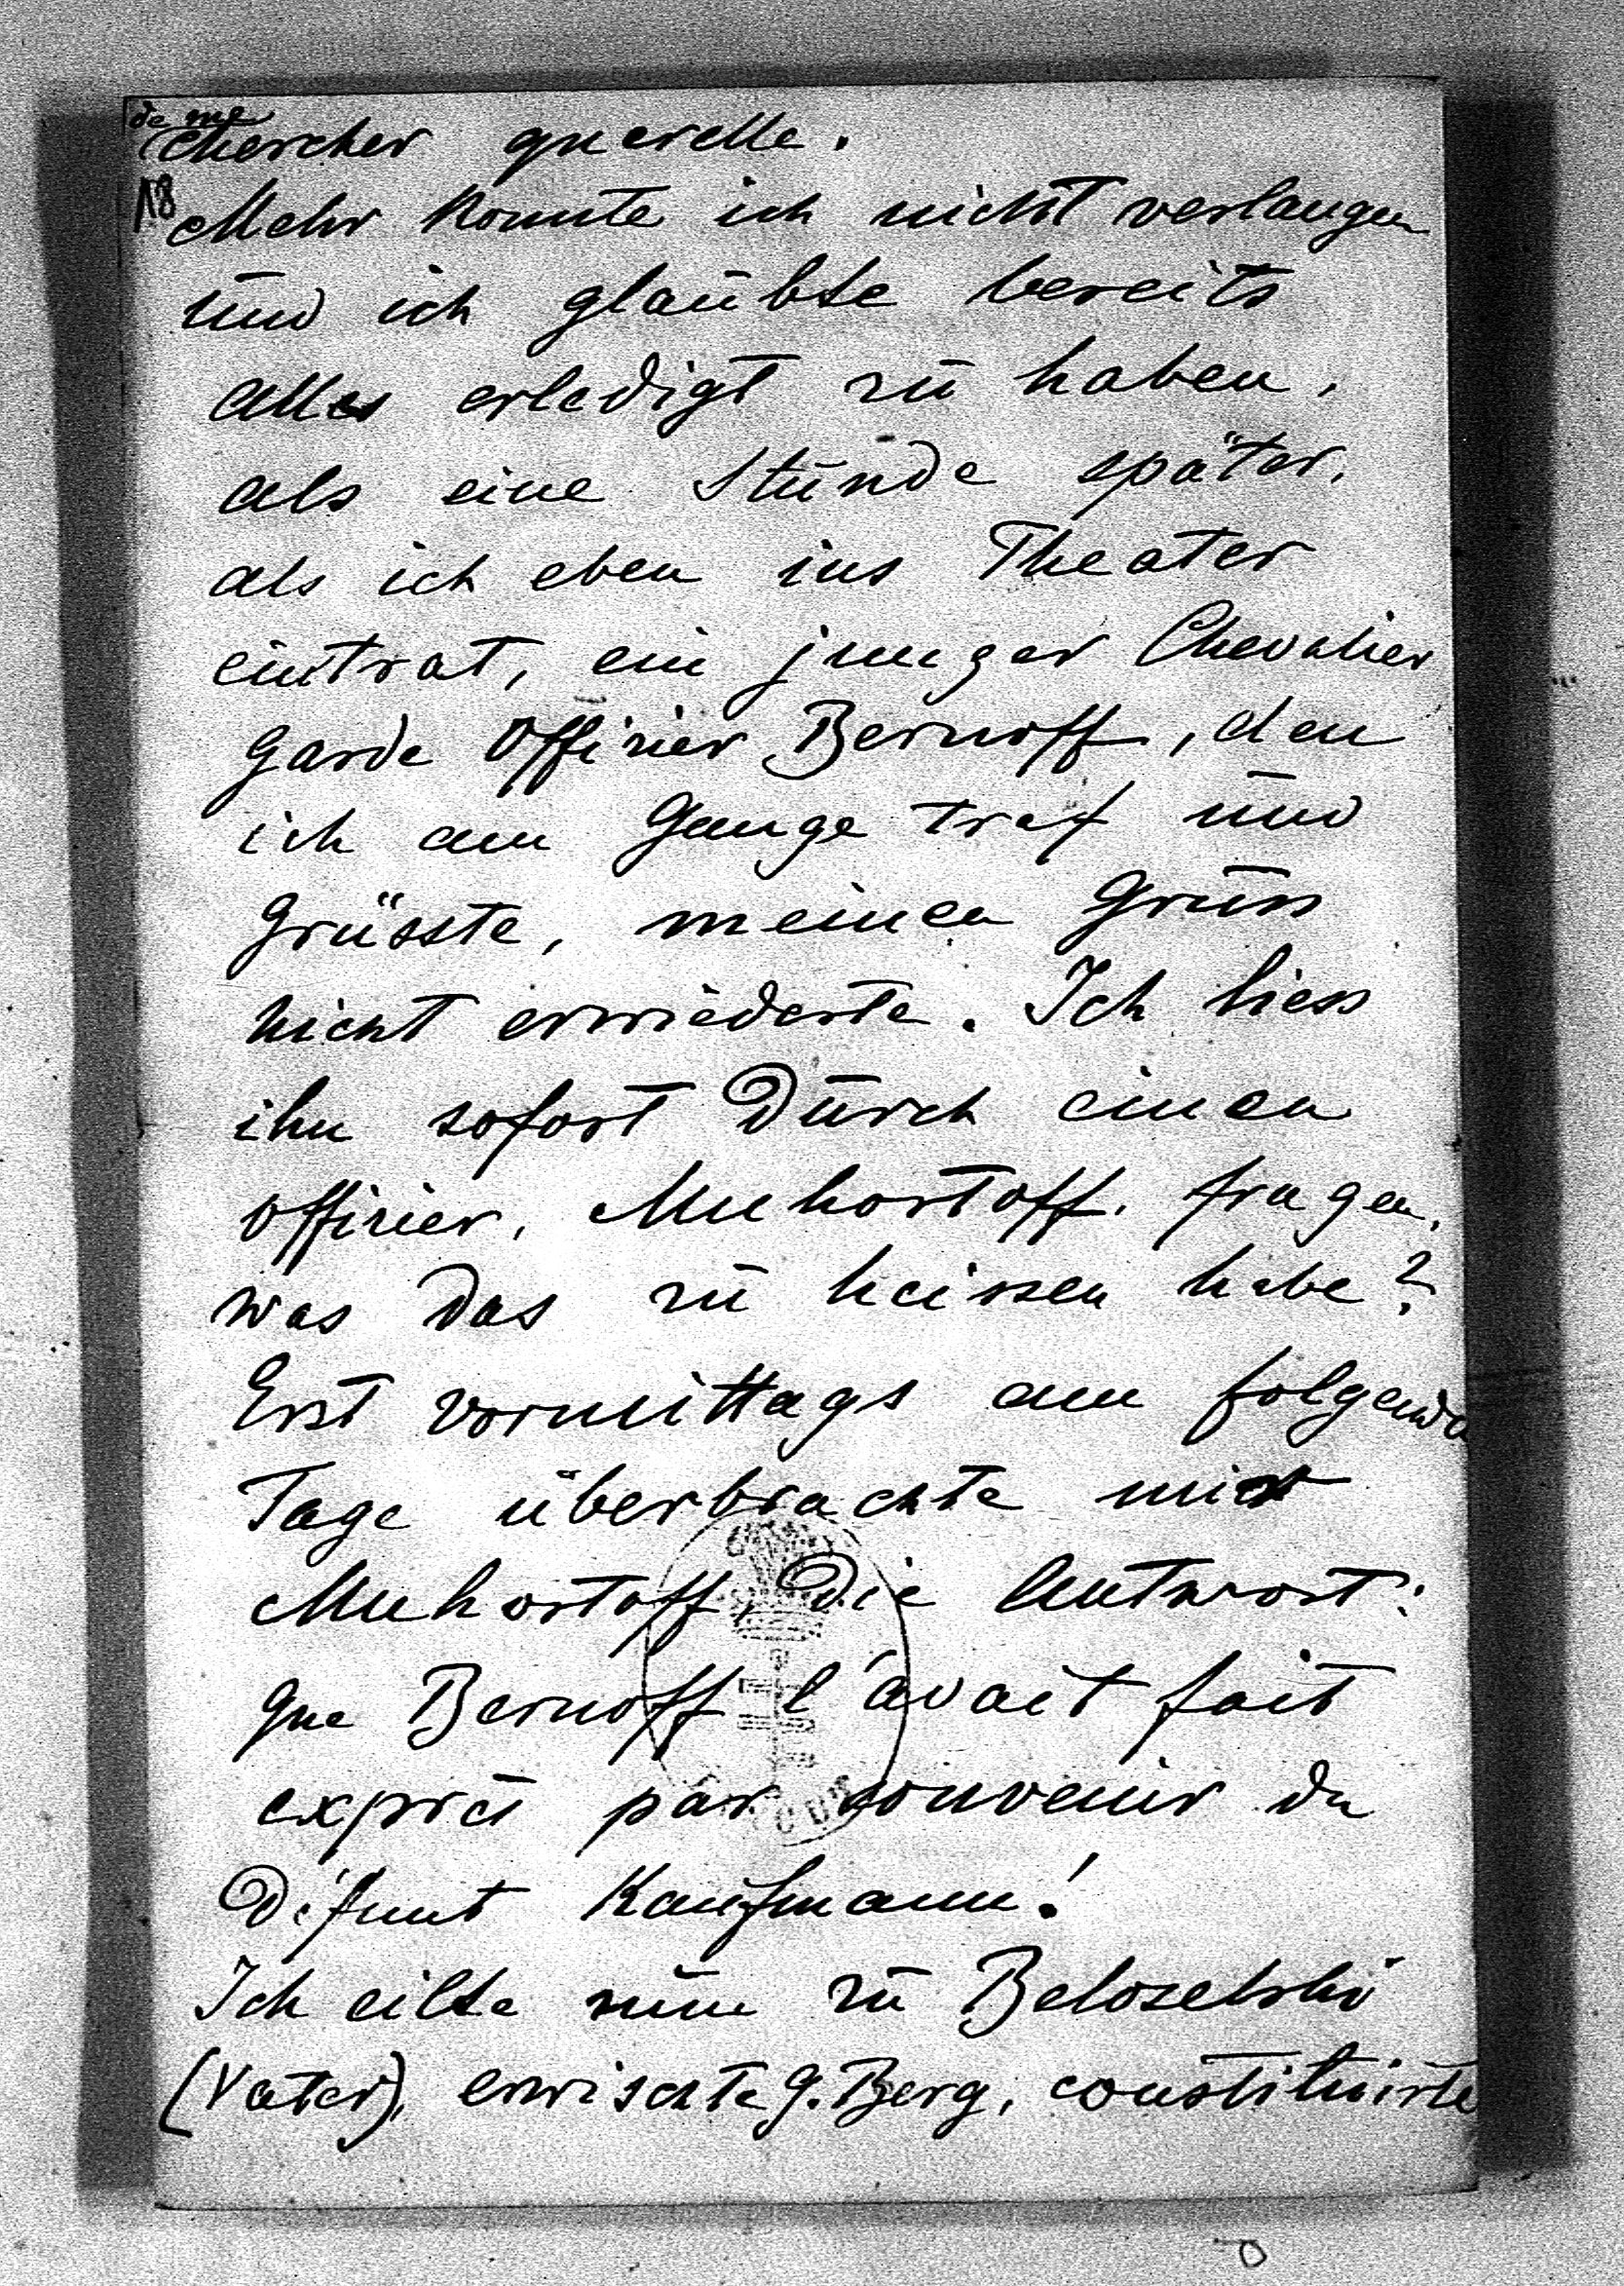 de me
chercher querelle.
18
Mehr konnte ich nicht verlangen
und ich glaubte bereits
alles erledigt zu haben,
als eine Stunde später,
als ich eben ins Theater
eintrat, ein junger Chevalier
Garde Offizier Bernoff, den
ich am Gange traf und
grüsste, meinen Gruss
nicht erwiederte. Ich liess
ihn sofort durch einen
Offizier, Muhortoff, fragen,
was das zu heissen habe?
Erst vormittags am folgenden
Tage überbrachte mir
Muhortoff, die Antwort:
que Bernoff l'avait fait
exprès par souvenir du
défunt Kaufmann!
Ich eilte nun zu Beloselski
(Vater), erwischte G. Berg, constituirte